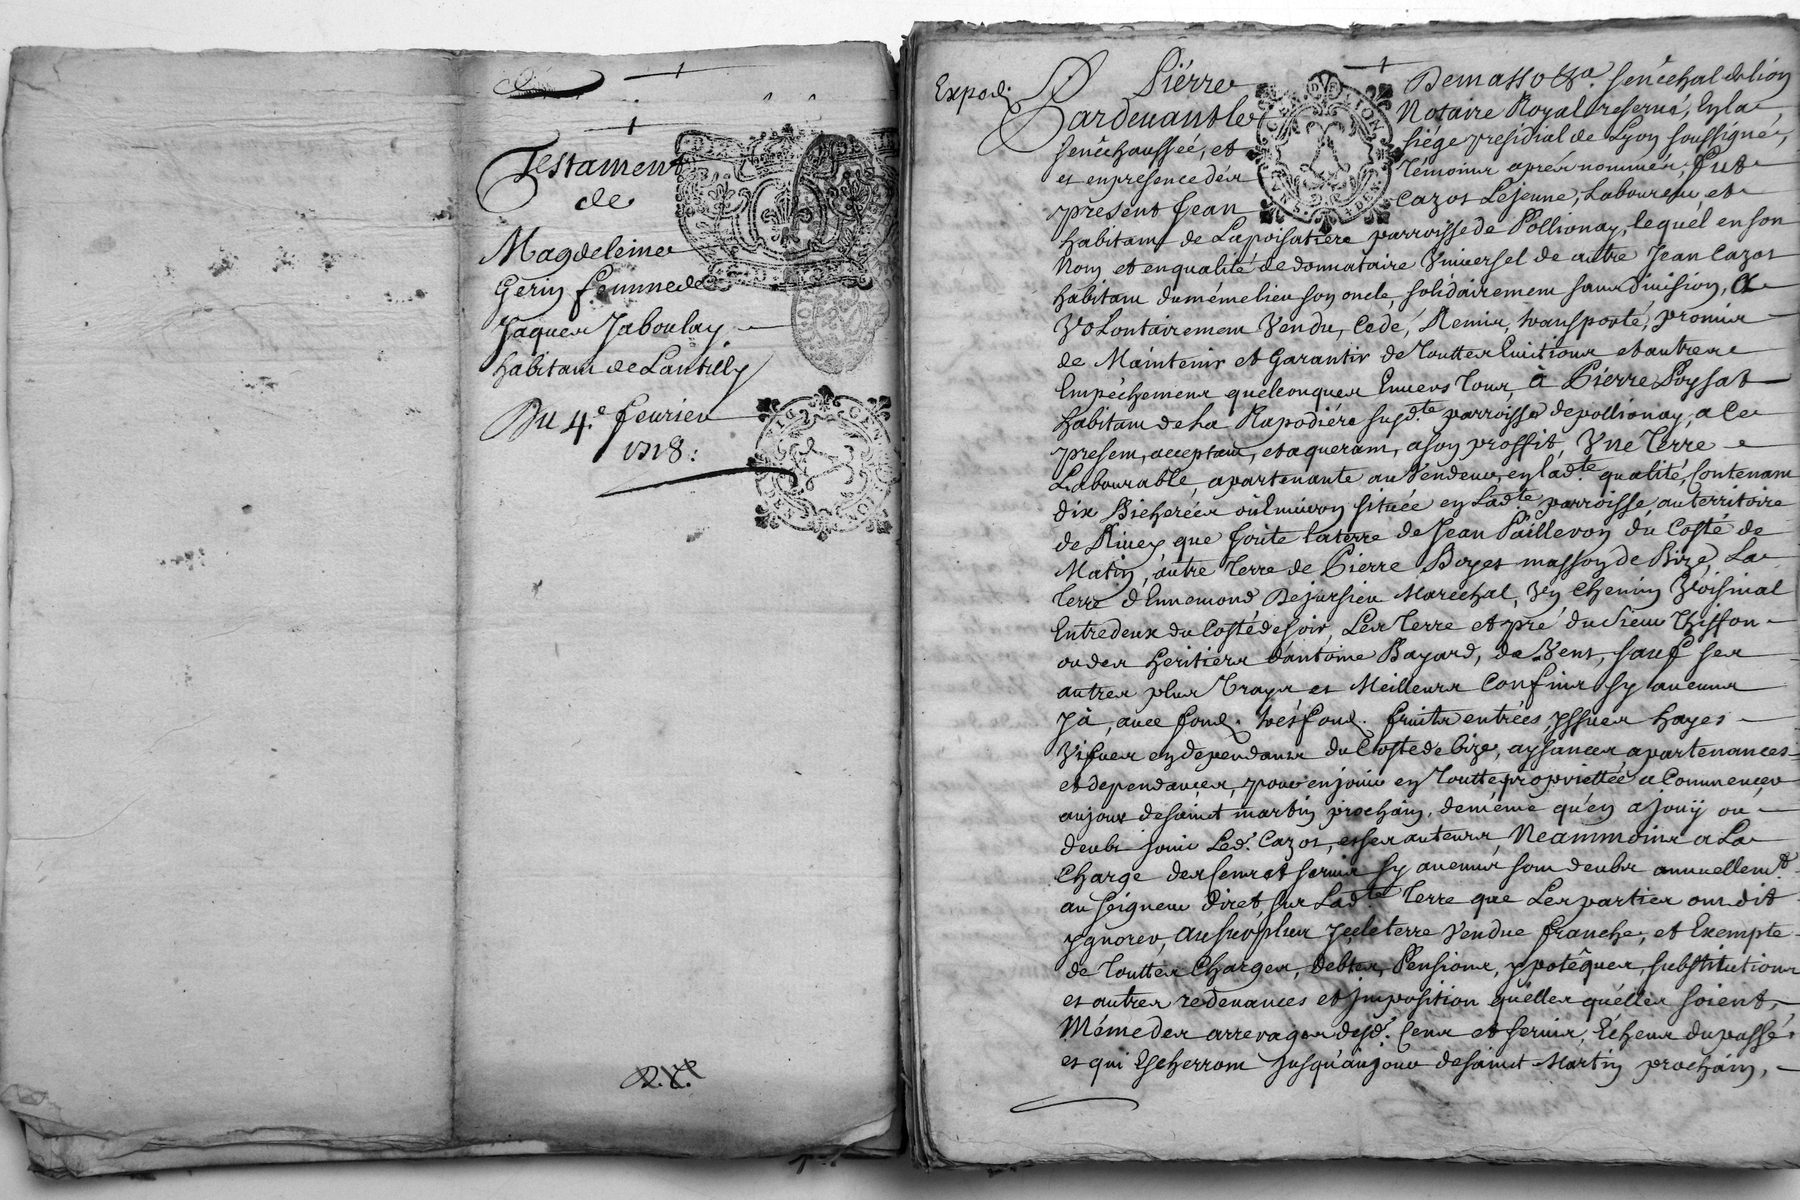 Testament
de
Magdeleine
Gerin femme de
Jaques Jaboulay
habitant de Lantilly
Du 4.e fevrier
1718:
Exped.
Pierre Demasso &a. senéchal de lion
Pardevant le Notaire Royal reservé, En la
senéchaussée, et siége presidial de Lyon soussigné,
et en presence des Témoins aprés nommés, fut
présent Jean Cazot Lejeune, Laboureur, et
habitant de Lapoisatiére parroisse de Pollionay, lequel en son
Nom et en qualité de donnataire Universel de autre Jean Cazot
habitant du méme lieu son oncle, solidairement sans division, A
Volontairement Vendu, Cedé, Remis, transporté, promis
de Maintenir et Garantir de Touttes Evitions et autres
Empéchemens quelconques Envers Tous, à Pierre Poysat
habitant de La Rapodiére susd.te parroisse de pollionay, a Ce
present, acceptant, et aquerant, a son proffit, Une Terre
Labourable, apartenante au Vendeur, en lad.te qualité, Contenant
dix Bicherées oûlmiron située en Lad.te parroisse, au territoire
de Rivey, que Joûte laterre de Jean Pailleron du Costé de
Matin, autre Terre de Pierre Boyet masson de Bize, La
Terre d'Ennemond Dejursieu Maréchal, Un Chemin Voisinal
Entredeux du Costé de soir, Les Terre et pré du Sieur Thiffon
ou des heritiers dantoine Bayard, de Vent, sauf ses
autres plus Vrays et Meilleurs Confins sy aucuns
y à, avec fond. trésfond. fruits entrées yssues hayes
Vifves en dependants du Costé de bize, aysances apartenances
et dependances, pour en jouir en Toutte propriettée a Commencer
au jour de saint martin prochain, deméme qu'en a joüy ou
deubt jouir Led. Cazot, et ses auteurs, Neammoins a La
Charge des sens et servis sy aucuns sont deubs annuellem.t
au seigneur diret, sur Lad.te Terre que Les parties ont dit
ygnorer, au surplus Jcelle terre Vendue franche, et Exempte
de Touttes Charges, debtes, Pensions, ypotêques, substitutions
et autres redevances et jmposition quélles quélles soient,
Méme des arrerages desd. Cens et servis, Echeus du passé
et qui Escherront jusqu'au jour de saint Martin prochain,